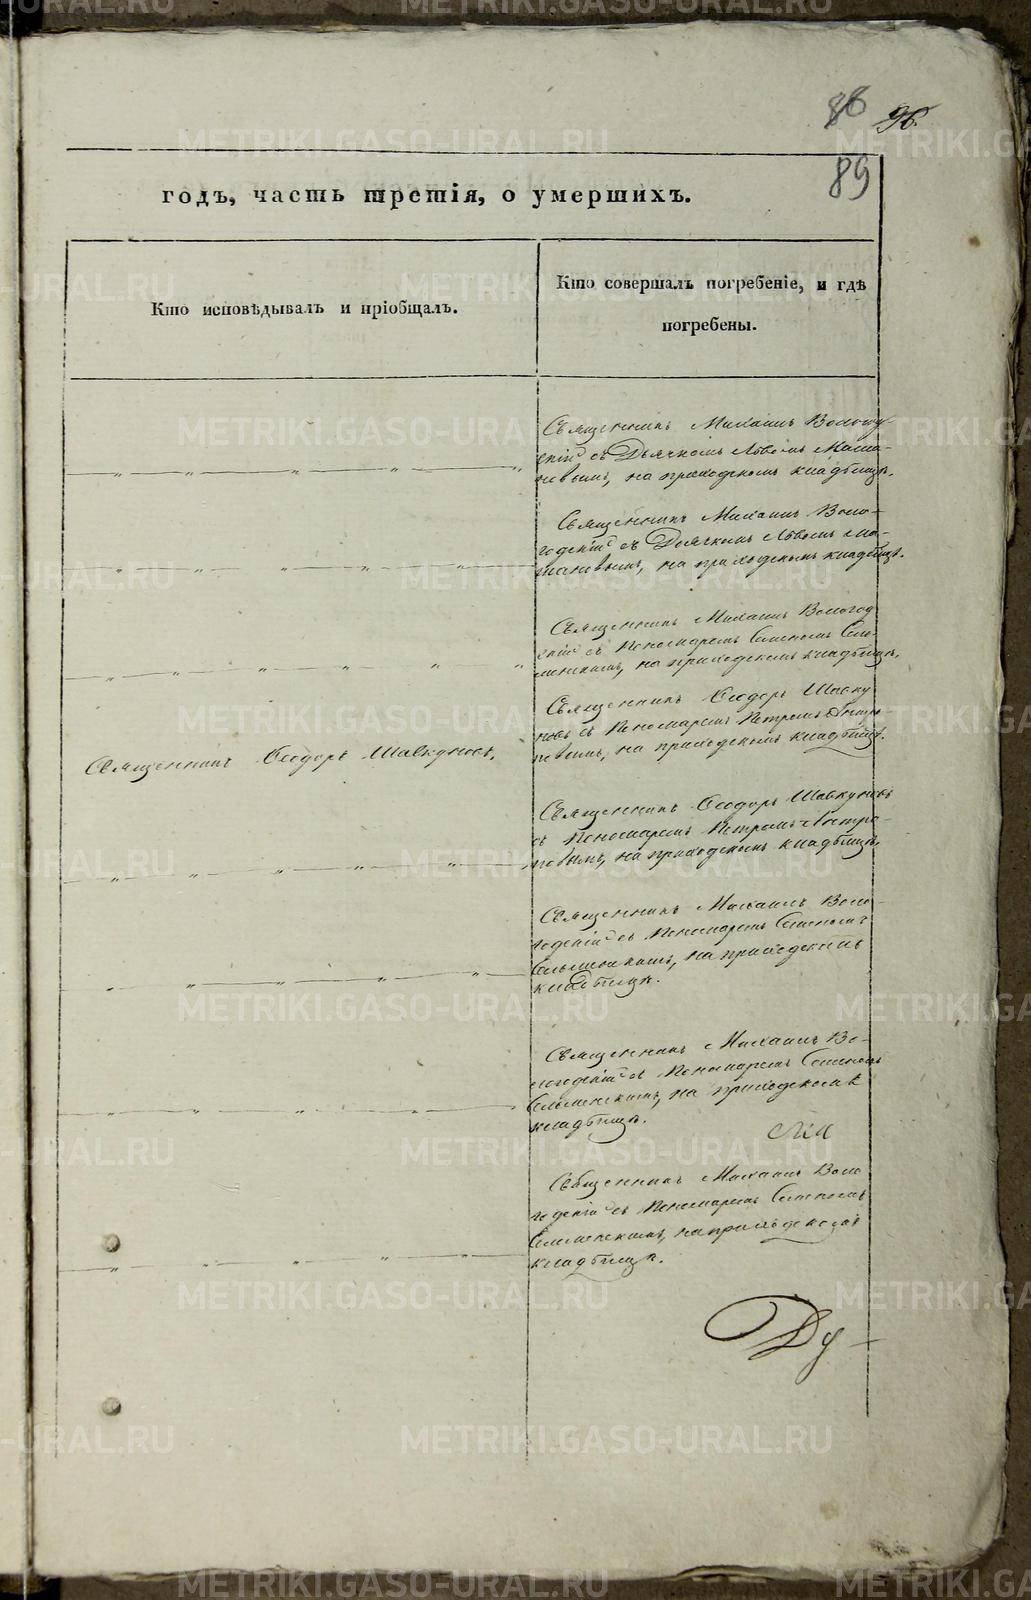 86 96.
89
годъ, часть третія, о умершихъ.
Кто исповѣдывалъ и пріобщалъ.
Кто совершалъ погребеніе, и гдѣ
погребены.
Священникъ Михаилъ Вологод
скій съ Дьячкомъ Львомъ
на приходскомъ кладбищѣ.
Священникъ Михаилъ Воло-
годскій съ Дьячкомъ Львомъ
на приходскомъ кладбищѣ.
Священникъ Михаилъ Вологод
скій съ Пономаремъ Семеномъ
на приходскомъ кладбищѣ.
Священникъ Ѳеодоръ Шавкуновъ.
Священникъ Ѳеодоръ Шавку
новъ съ Пономаремъ Петромъ
на приходскомъ кладбищѣ.
Священникъ Ѳеодоръ Шавкуновъ
съ Пономаремъ Петромъ
на приходскомъ кладбищѣ.
Священникъ Михаилъ Воло-
годскій съ Пономаремъ Семеномъ
на приходскомъ
кладбищѣ.
Священникъ Михаилъ Во-
логодскій съ Пономаремъ Семеномъ
на приходскомъ
кладбищѣ.
Священникъ Михаилъ Воло
годскій съ Пономаремъ Семеномъ
на приходскомъ
кладбищѣ.
Ду-
METRIKI.GASO-URAL.RU